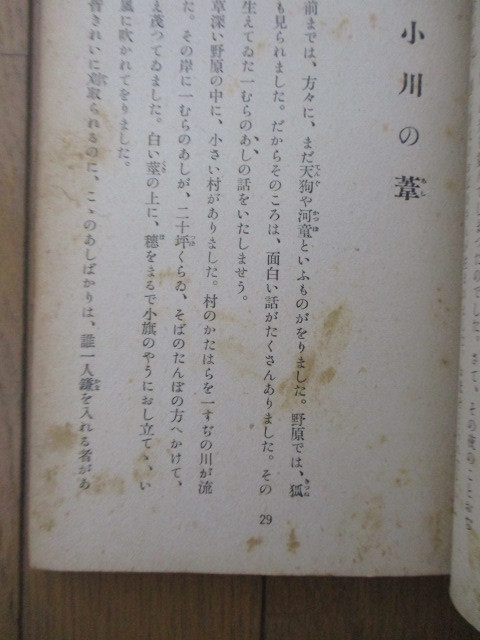 小川の葦
前までは、方々に、まだ天狗や河童といふものがをりました。野原では、狐
も見られました。だからそのころは、面白い話がたくさんありました。その
生えてゐた一むらのあしの話をいたしませう。
草深い野原の中に、小さい村がありました。村のかたはらを一すぢの川が流
た。その岸に一むらのあしが、二十坪くらゐ、そばのたんぼの方へかけて、
え茂つてゐました。白い莖の上に、穗をまるで小旗のやうにおし立てゝ、い
風に吹かれてをりました。
皆きれいに刈取られるのに、こゝのあしばかりは、誰一人鎌を入れる者があ
29